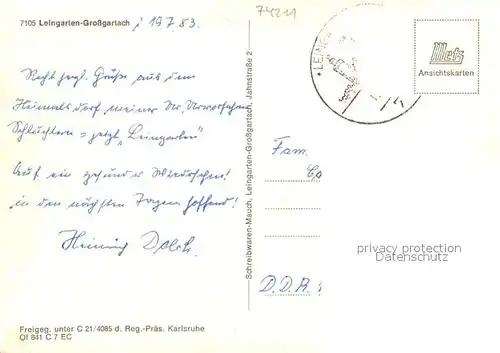 7105 Leingarten-Großgartach
19.7.83.
74211
Recht herzl. Grüße aus dem
Heimatsdorf meiner Ur. Urvorfahren
Schluchtern = jetzt "Leingarten"
Auf ein gesundes Wiedersehen!
in den nächsten Tagen hoffend!
Heinrich
Freigeg. unter C 21/4085 d. Reg.-Präs. Karlsruhe
Of 841 C 7 EC
Schreibwaren-Mauch, Leingarten-Großgartach, Jahnstraße 2
LEINGA
Metz
Ansichtskarten
Fam.
privacy protection
Datenschutz
D.D.R.